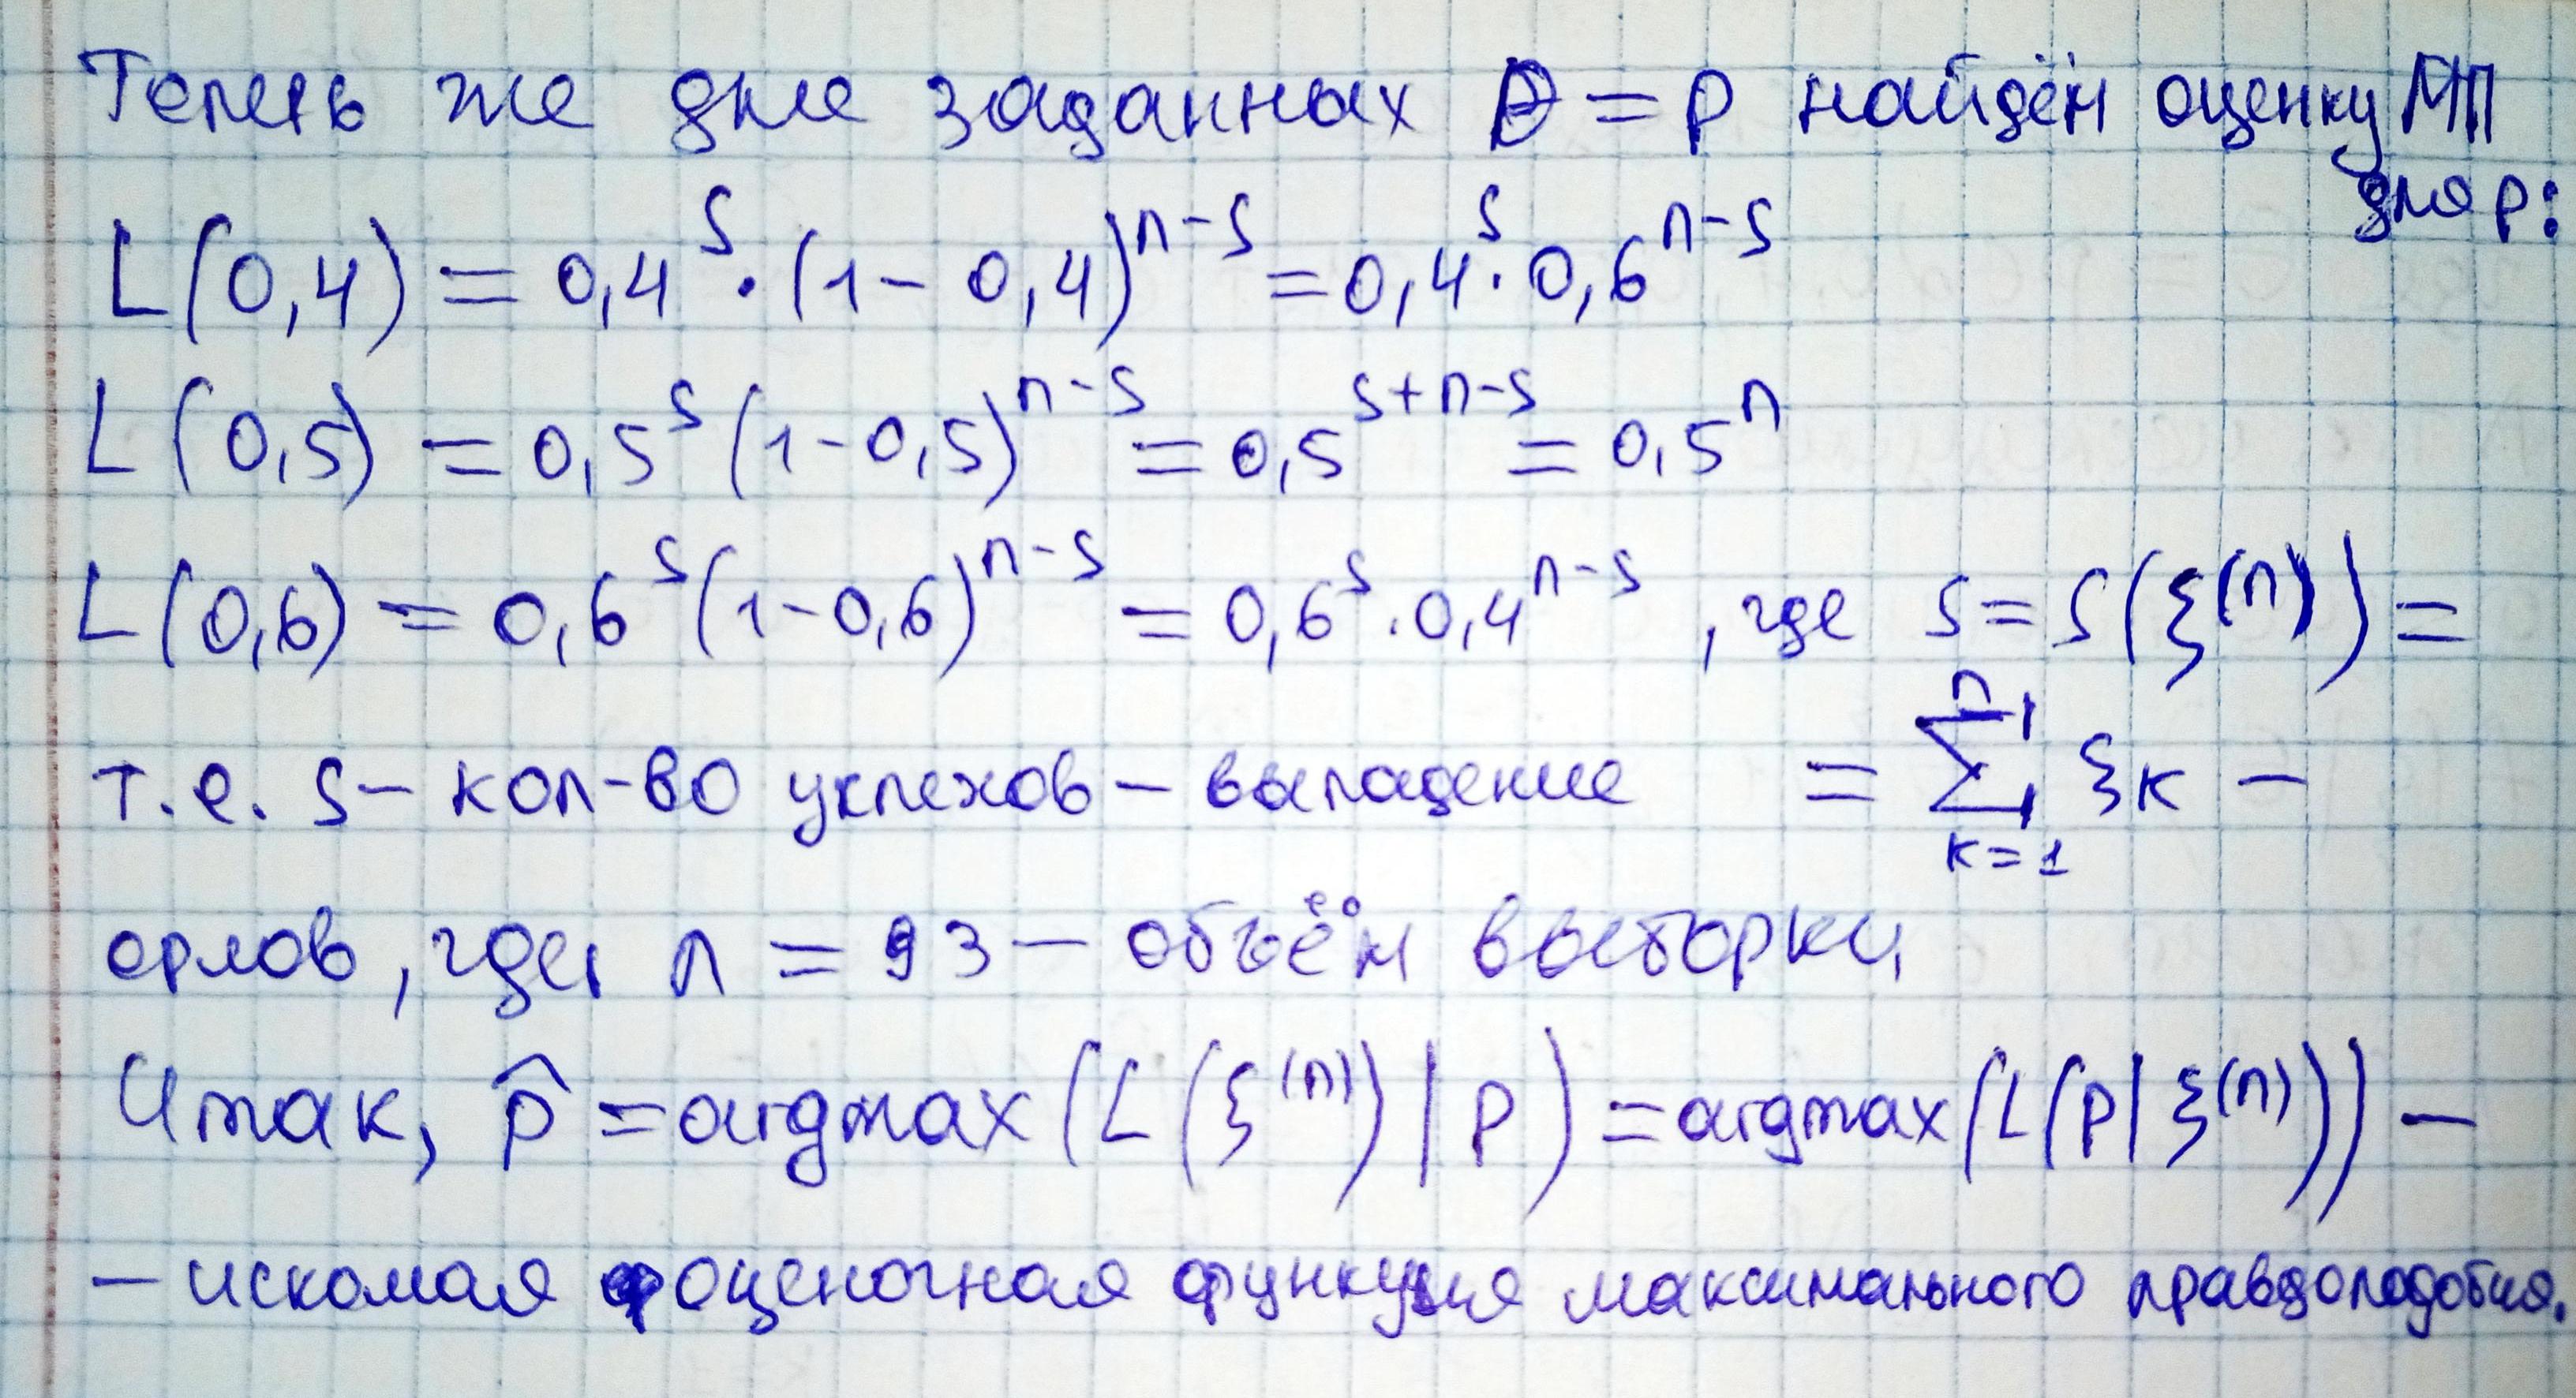 Теперь же для заданных θ = p найдём оценку МП
для p:
L(0,4) = 0,4^s · (1 - 0,4)^{n-s} = 0,4^s · 0,6^{n-s}
L(0,5) = 0,5^s (1-0,5)^{n-s} = 0,5^{s+n-s} = 0,5^n
L(0,6) = 0,6^s (1-0,6)^{n-s} = 0,6^s · 0,4^{n-s} , где s = S(ξ^{(n)}) =
т.е. s - кол-во успехов - выпадение = \sum_{k=1}^{n} ξ_k -
орлов, где n = 93 - объём выборки
Итак, p̂ = argmax(L(ξ^{(n)}) | p) = argmax(L(p | ξ^{(n)})) -
- искомая оценочная функция максимального правдоподобия.